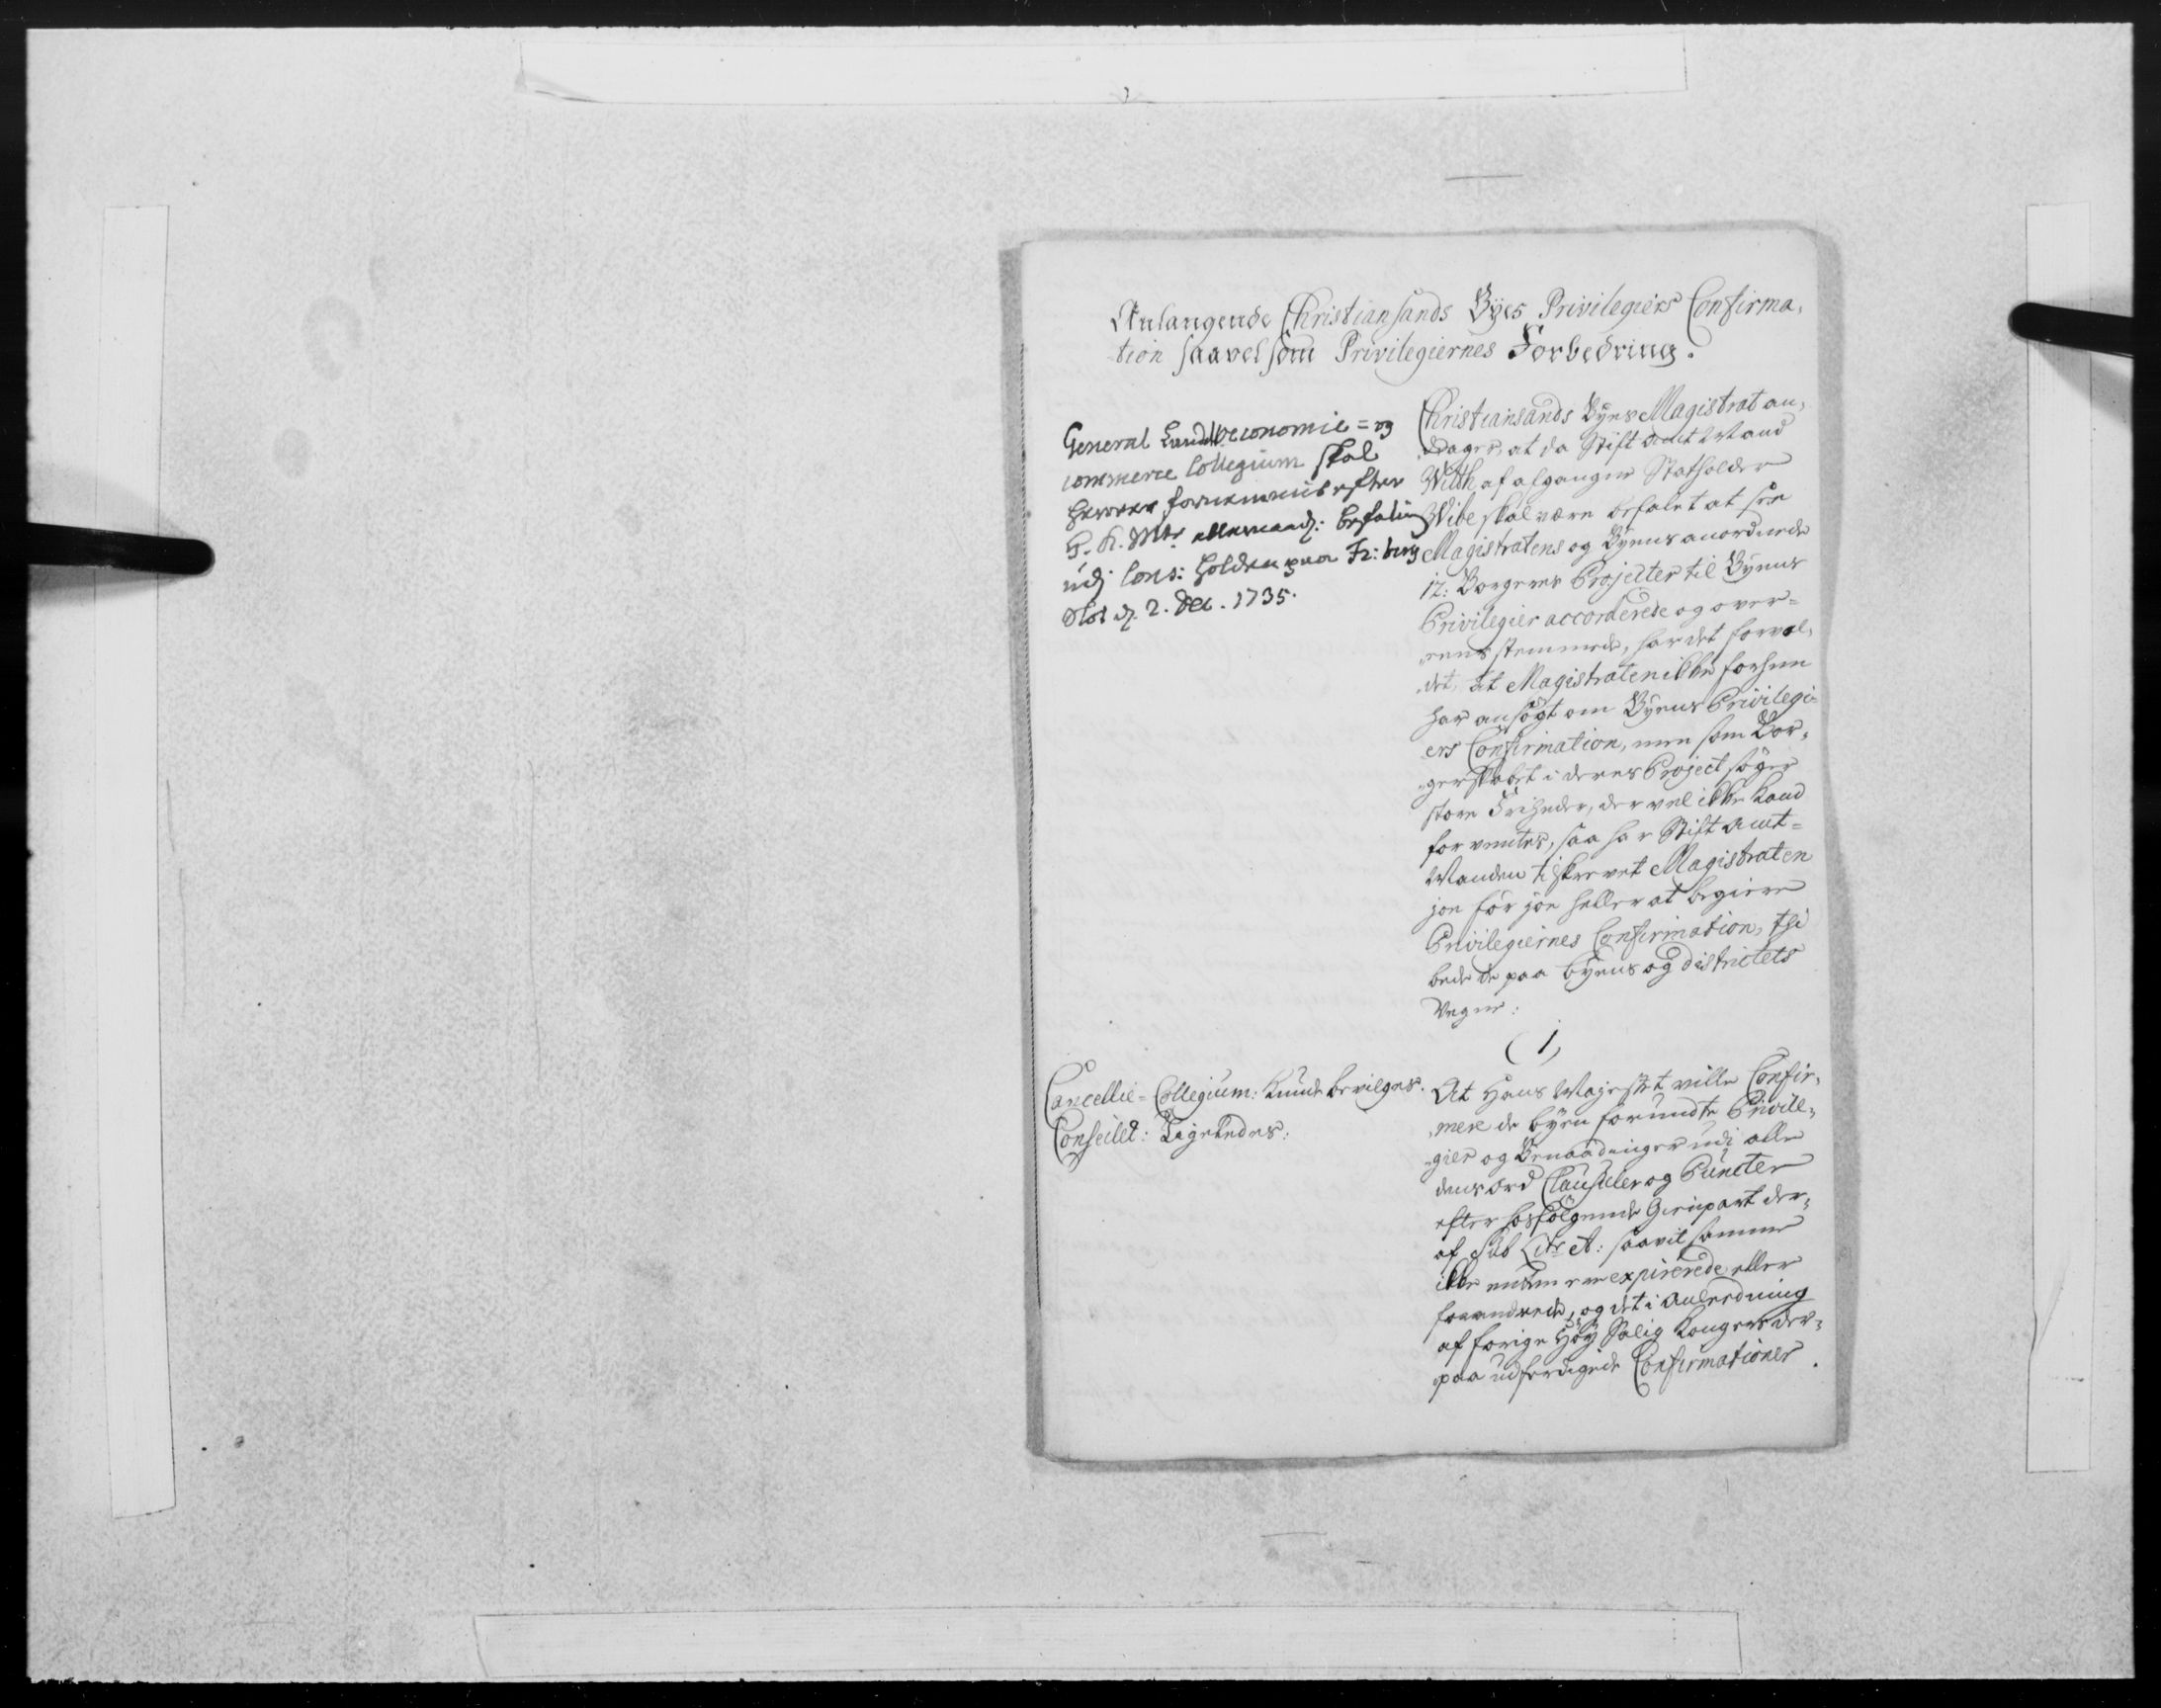 Anlangende Christiansands Byes Privilegiers Confirma,
tion saavelsom Privilegiernes Forbedring.
General Land Oeconomie= og
commerce Collegium skal
herover fornemmes efter
H. K. Mts allernaad: befaling
udj Cons: holden paa Fr: berg
Slot d. 2. Dec. 1735.
Christiansands Byes Magistrat an,
drager, at da Stift Amt Mand
With af afgangne Statholder
Wibe skal være befalet at see
Magistratens og Byens anordnede
12: Borgeres Projecter til Byens
Privilegier accorderede og over=
eensstemmede, har det forvol,
det, at Magistraten ikke forhen
har ansøgt om Byens Privilegi=
ers Confirmation, men som Bor,
gerskabet i deres Project søger
store Friheder, der vel ikke kand
forventes, saa har Stift Amt=
Manden tilskrevet Magistraten
joe før joe heller at begiere
Privilegiernes Confirmation, thi
bede de paa Byens og districtets
Vegne:
(1)
Cancellie=Collegium: Kunde bevilges.
Conseilet: Ligeledes:
At Hans Majestet ville Confir,
mere de byen forundte Privile,
gier og Benaadinger udi alle
deres ord Clausuler og Puncter
efter hosfølgende Genpart der,
af sub Litr A: saavit samme
ikke enten ere expirerede eller
forandrede, og det i Anledning
af forige Høy Salig Kongers der,
paa udferdigede Confirmationer.